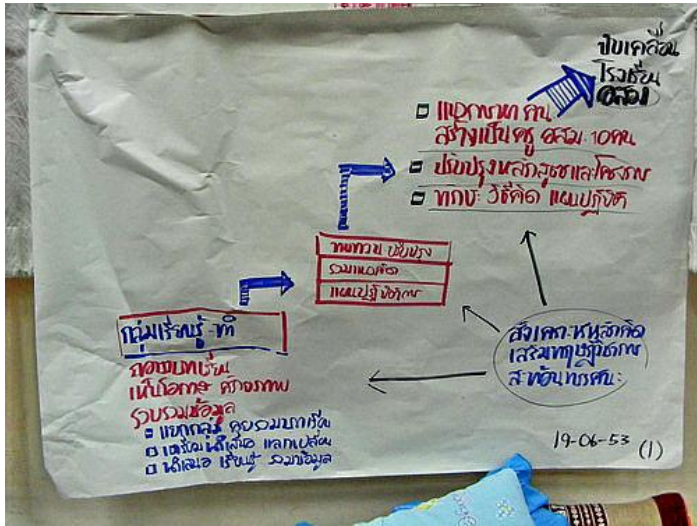 ขับเคลื่อน
โรงเรียน
อสม.
แสวงหา คน
สร้างเป็นครู อสม. 10 คน
ปรับปรุงหลักสูตรและโครงการ
ทักษะ วิธีคิด แผนปฏิบัติ
ทบทวน ปรับปรุง
รวมแนวคิด
แผนปฏิบัติการ
กลุ่มเรียนรู้
ถอดบทเรียน
เห็นโอกาส ศักยภาพ
รวบรวมข้อมูล
แยกกลุ่ม คุยรวมบทเรียน
เตรียมนำเสนอ แลกเปลี่ยน
นำเสนอ เรียนรู้ รวมข้อมูล
สังเคราะห์หลักคิด
เสริมทฤษฎีวิชาการ
สะท้อนทรรศนะ
19-06-53 (1)